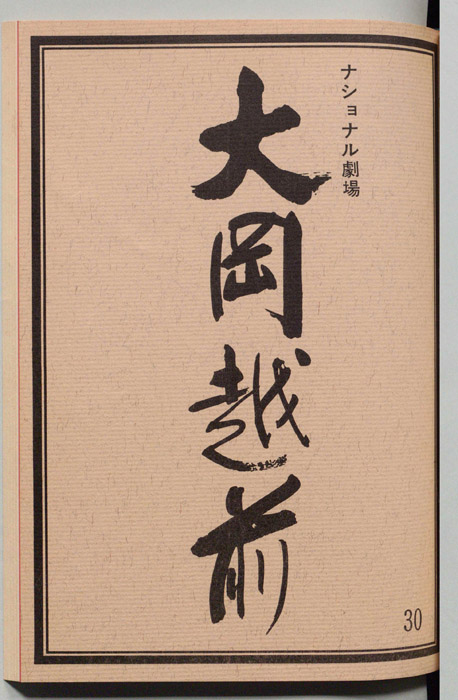 ナショナル劇場
大岡越前
30